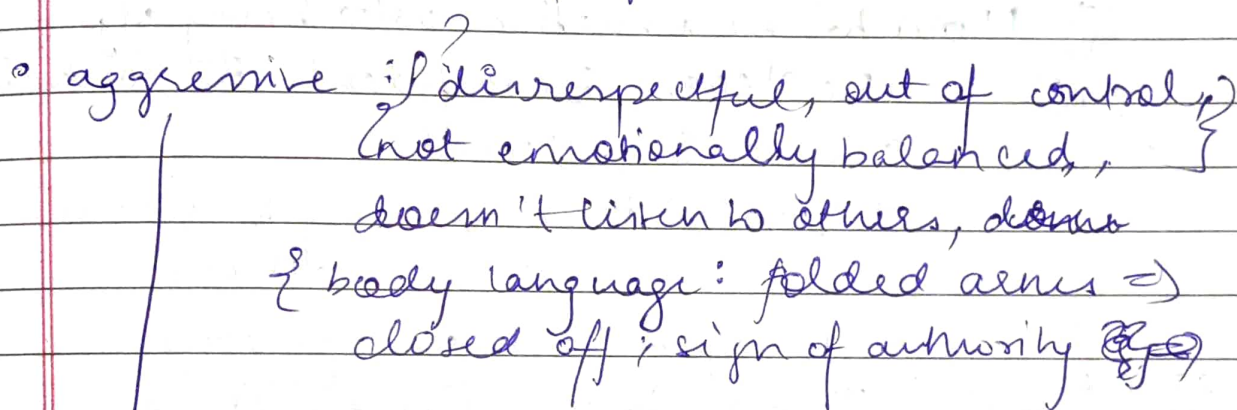 • aggressive : { disrespectful, out of control, }
{ not emotionally balanced, }
doesn't listen to others,
{ body language : folded arms =>
closed off ; sign of authority